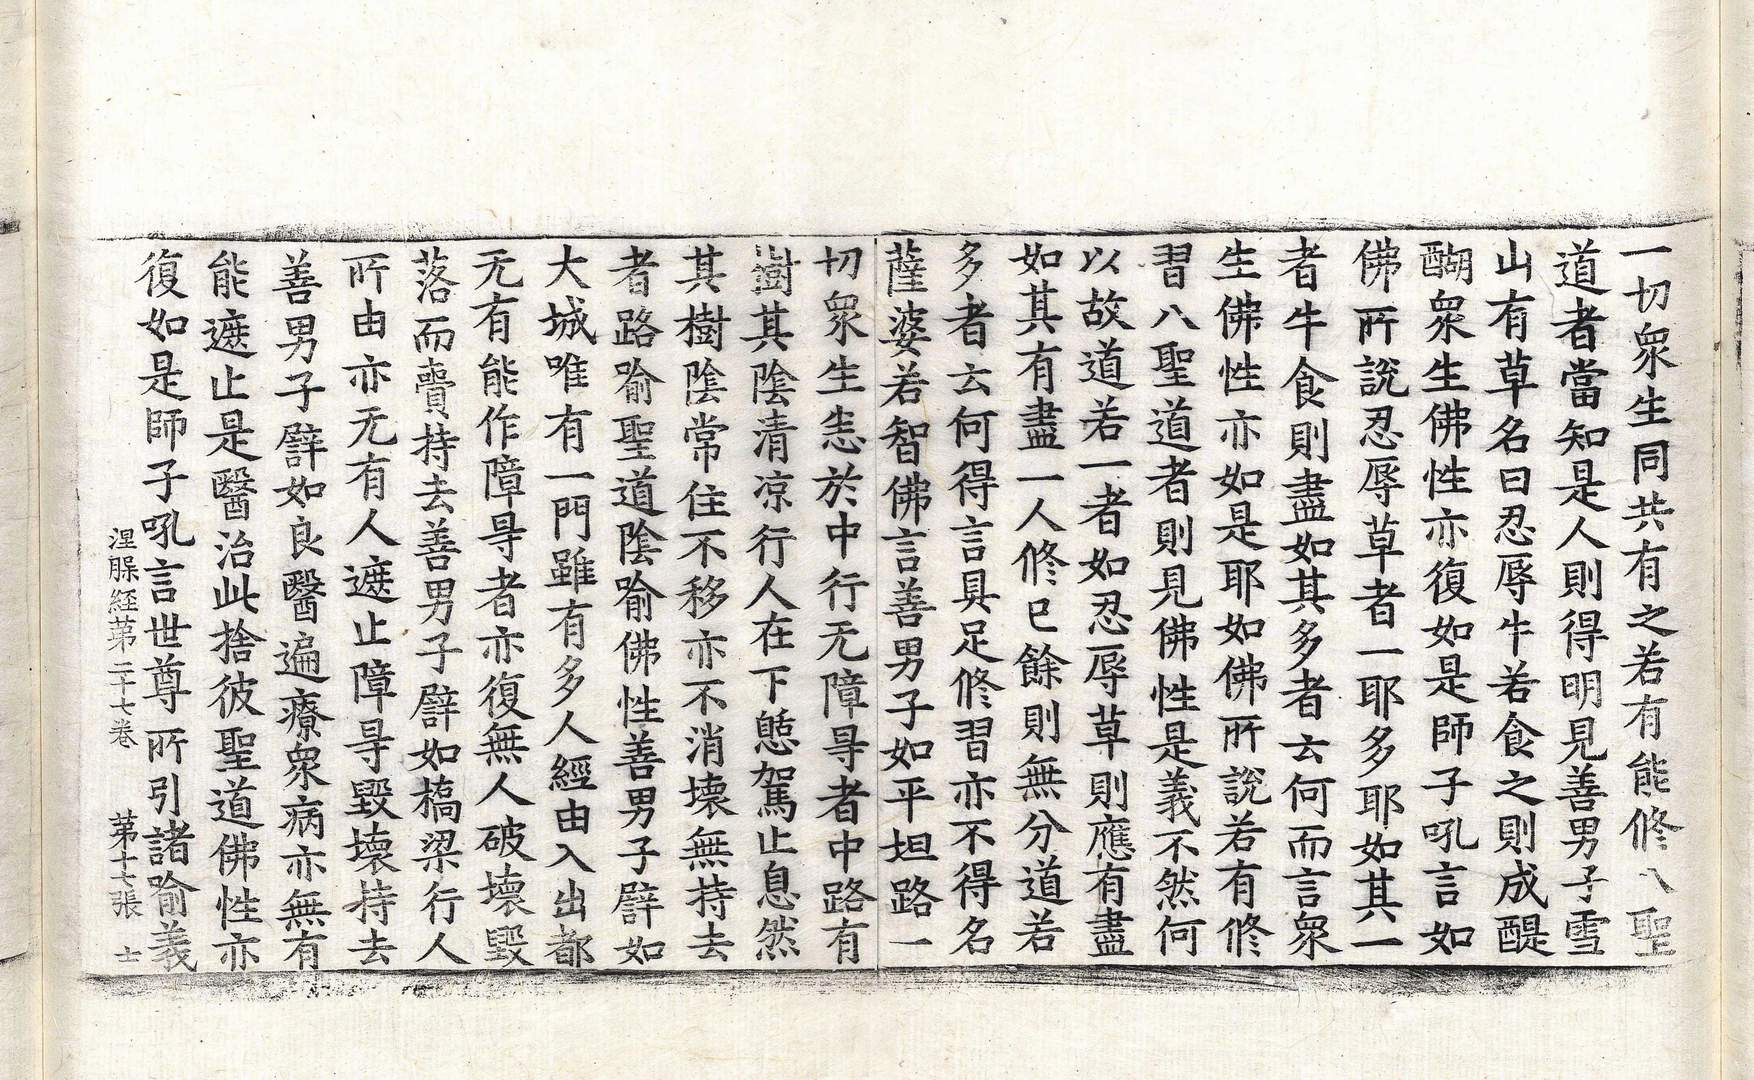 一切衆生同共有之若有能修八聖
道者當知是人則得明見善男子雪
山有草名曰忍辱牛若食之則成醍
醐衆生佛性亦復如是師子吼言如
佛所說忍辱草者一耶多耶如其一
者牛食則盡如其多者云何而言衆
生佛性亦如是耶如佛所說若有修
習八聖道者則見佛性是義不然何
以故道若一者如忍辱草則應有盡
如其有盡一人修已餘則無分道若
多者云何得言具足修習亦不得名
薩婆若智佛言善男子如平坦路一
切衆生悉於中行无障㝵者中路有
樹其陰清凉行人在下憩駕止息然
其樹陰常住不移亦不消壞無持去
者路喻聖道陰喻佛性善男子譬如
大城唯有一門雖有多人經由入出都
无有能作障㝵者亦復無人破壞毀
落而賷持去善男子譬如橋梁行人
所由亦无有人遮止障㝵毀壞持去
善男子譬如良醫遍療衆病亦無有
能遮止是醫治此捨彼聖道佛性亦
復如是師子吼言世尊所引諸喻義
涅槃経苐二十七卷 苐十七張 士